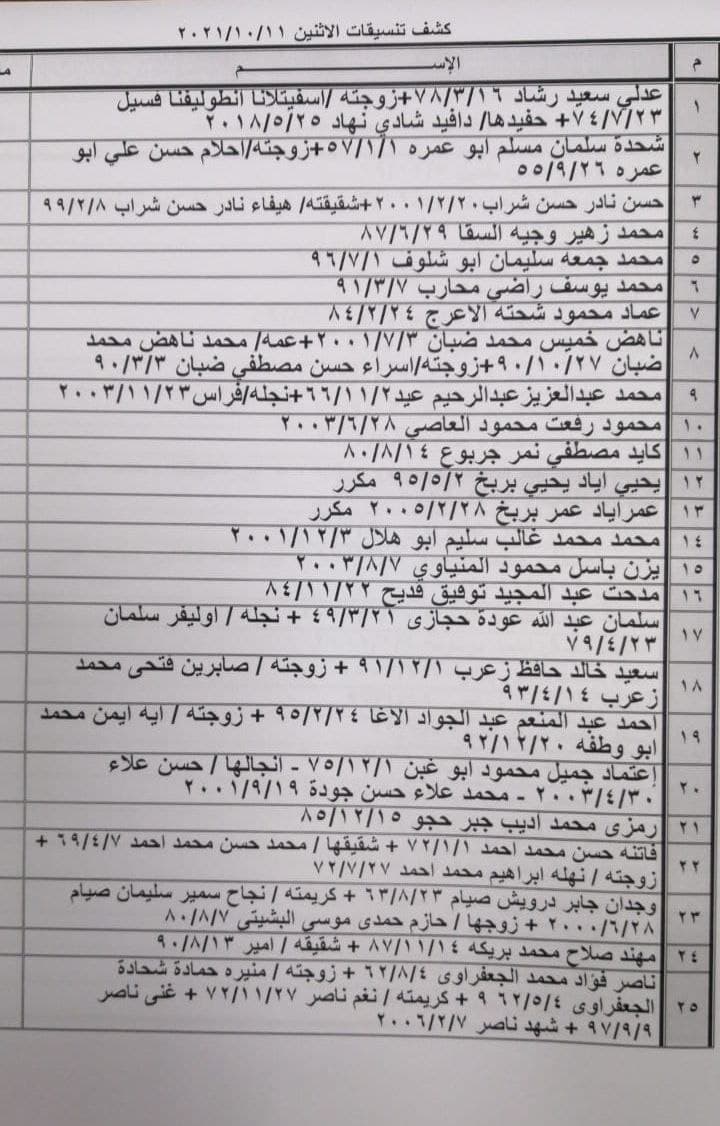 كشف تنسيقات الاثنين ٢٠٢١/١٠/١١
م الإســــم
١ عدلي سعيد رشاد ٧٨/٣/١٦+زوجته /اسفيتلانا انطوليفنا فسيل
٧٤/٧/٢٣+ حفيدها/ دافيد شادي نهاد ٢٠١٨/٥/٢٥
٢ شحدة سلمان مسلم ابو عمره ٥٧/١/١+زوجته/احلام حسن علي ابو
عمره ٥٥/٩/٢٦
٣ حسن نادر حسن شراب٢٠٠١/٢/٢٠+شقيقته/ هيفاء نادر حسن شراب ٩٩/٢/٨
٤ محمد زهير وجيه السقا ٨٧/٦/٢٩
٥ محمد جمعه سليمان ابو شلوف ٩٦/٧/١
٦ محمد يوسف راضي محارب ٩١/٣/٧
٧ عماد محمود شحته الاعرج ٨٤/٢/٢٤
٨ ناهض خميس محمد ضبان ٢٠٠١/٧/٣+عمه/ محمد ناهض محمد
ضبان ٩٠/١٠/٢٧+زوجته/اسراء حسن مصطفي ضبان ٩٠/٣/٣
٩ محمد عبدالعزيز عبدالرحيم عيد٦٦/١١/٢+نجله/فراس٢٠٠٣/١١/٢٣
١٠ محمود رفعت محمود العاصي ٢٠٠٣/٦/٢٨
١١ كايد مصطفي نمر جربوع ٨٠/٨/١٤
١٢ يحيي اياد يحيي بربخ ٩٥/٥/٢ مكرر
١٣ عمراياد عمر بربخ ٢٠٠٥/٢/٢٨ مكرر
١٤ محمد محمد غالب سليم ابو هلال ٢٠٠١/١٢/٣
١٥ يزن باسل محمود المنياوي ٢٠٠٣/٨/٧
١٦ مدحت عبد المجيد توفيق قديح ٨٤/١١/٢٢
١٧ سلمان عبد الله عودة حجازى ٤٩/٣/٢١ + نجله / اوليفر سلمان
٧٩/٤/٢٣
١٨ سعيد خالد حافظ زعرب ٩١/١٢/١ + زوجته / صابرين فتحى محمد
زعرب ٩٣/٤/١٤
١٩ احمد عبد المنعم عبد الجواد الاغا ٩٥/٢/٢٤ + زوجته / ايه ايمن محمد
ابو وطفه ٩٢/١٢/٢٠
٢٠ إعتماد جميل محمود ابو غبن ٧٥/١٢/١ - انجالها / حسن علاء
٢٠٠٣/٤/٣٠ - محمد علاء حسن جودة ٢٠٠١/٩/١٩
٢١ رمزى محمد اديب جبر حجو ٨٥/١٢/١٥
٢٢ فاتنه حسن محمد احمد ٧٢/١/١ + شقيقها / محمد حسن محمد احمد ٦٩/٤/٧ +
زوجته / نهله ابراهيم محمد احمد ٧٢/٧/٢٧
٢٣ وجدان جابر درويش صيام ٦٣/٨/٢٣ + كريمته / نجاح سمير سليمان صيام
٢٠٠٠/٦/٢٨ + زوجها / حازم حمدى موسى البشيتى ٨٠/٨/٧
٢٤ مهند صلاح محمد بريكه ٨٧/١١/١٤ + شقيقه / امير ٩٠/٨/١٣
٢٥ ناصر فؤاد محمد الجعفراوى ٦٢/٨/٤ + زوجته / منيره حمادة شحادة
الجعفراوى ٦٢/٥/٤ ٩ + كريمته / نغم ناصر ٧٢/١١/٢٧ + غنى ناصر
٩٧/٩/٩ + شهد ناصر ٢٠٠٦/٢/٧